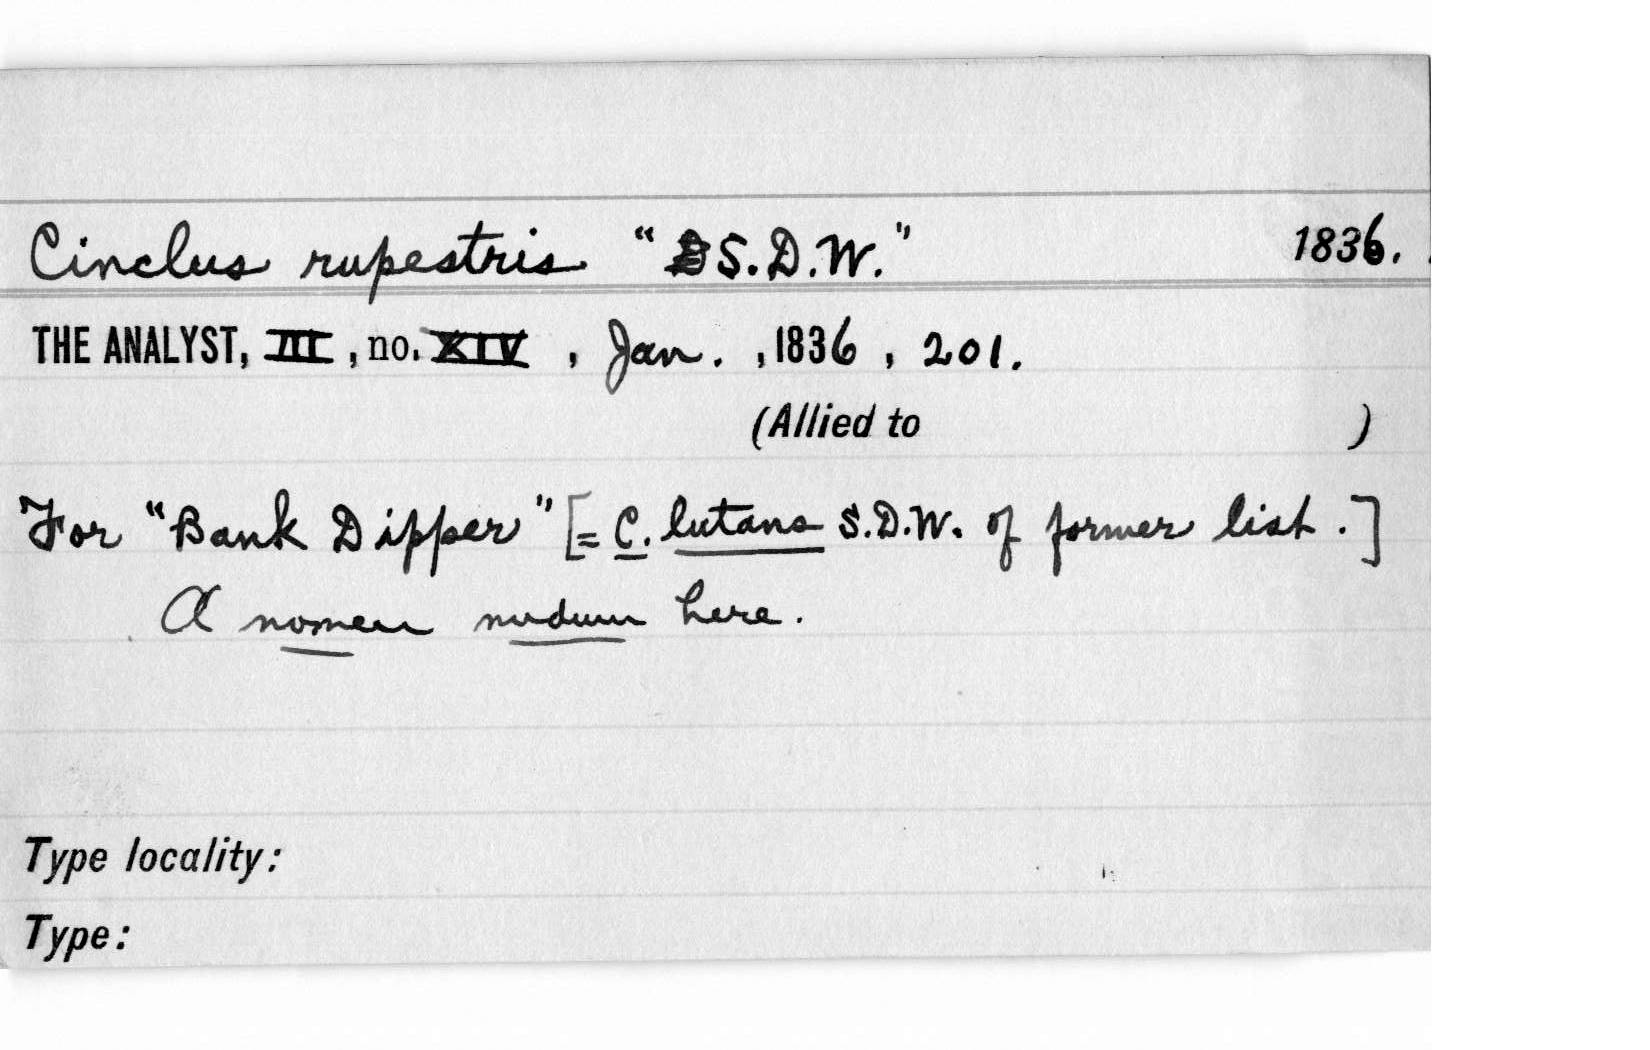 Cinclus rupestris "S.D.W." 1836.
THE ANALYST, III, no. XIV, Jan., 1836, 201.
(Allied to )
For "Bank Dipper" [= C. lutans S.D.W. of former list.]
A nomen nudum here.
Type locality:
Type: